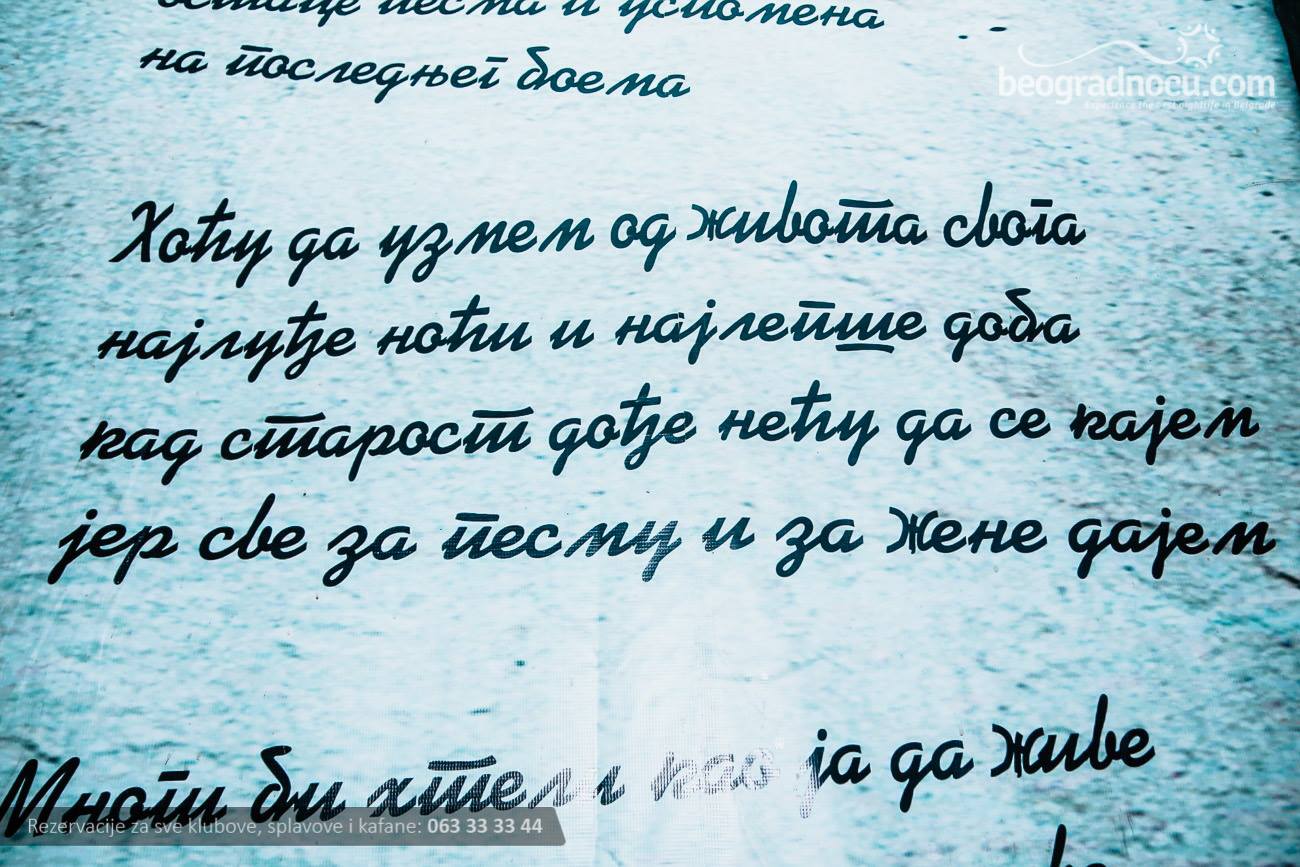 остаће песма и успомена
на последњег боема
beogradnocu.com
Experience the best nightlife in Belgrade
Хоћу да узмем од живота свога
најлуђе ноћи и најлепше доба
кад старост дође нећу да се кајем
јер све за песму и за жене дајем
Многи би хтели као ја да живе
Rezervacije za sve klubove, splavove i kafane: 063 33 33 44